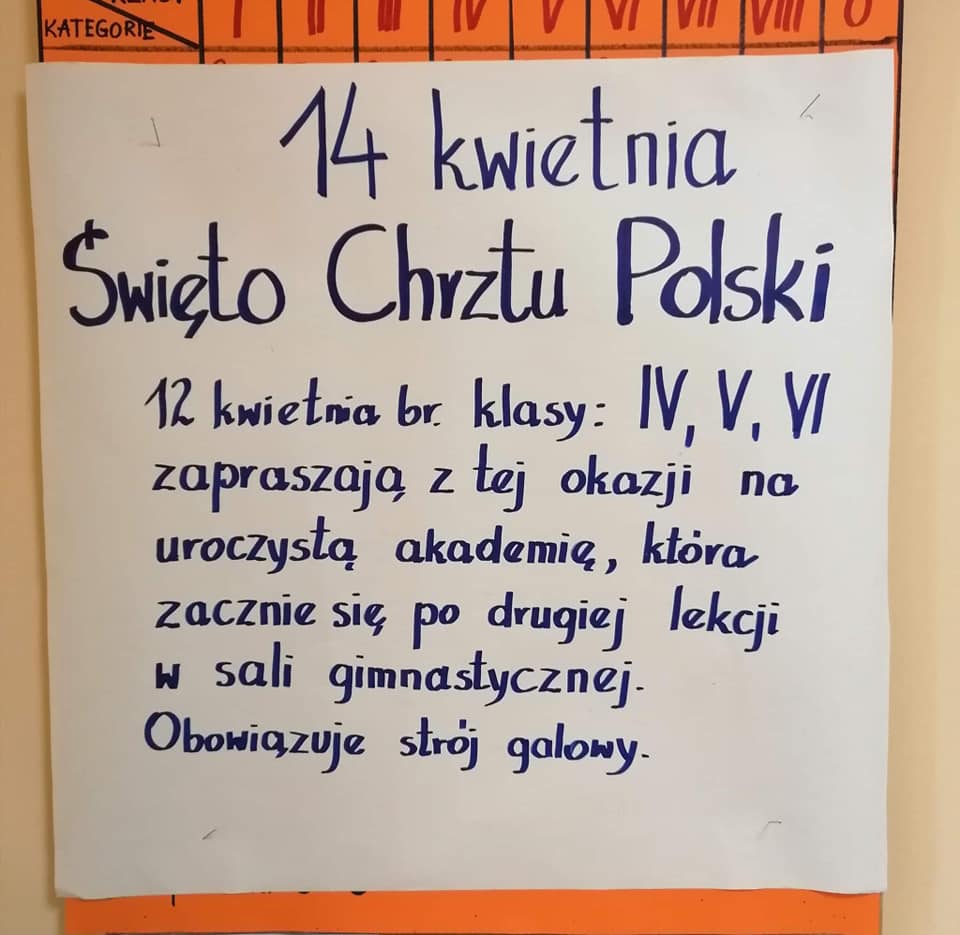 KATEGORIE I II III IV V VI VII VIII O
14 kwietnia
Święto Chrztu Polski
12 kwietnia br. klasy: IV, V, VI
zapraszają z tej okazji na
uroczystą akademię, która
zacznie się po drugiej lekcji
w sali gimnastycznej.
Obowiązuje strój galowy.